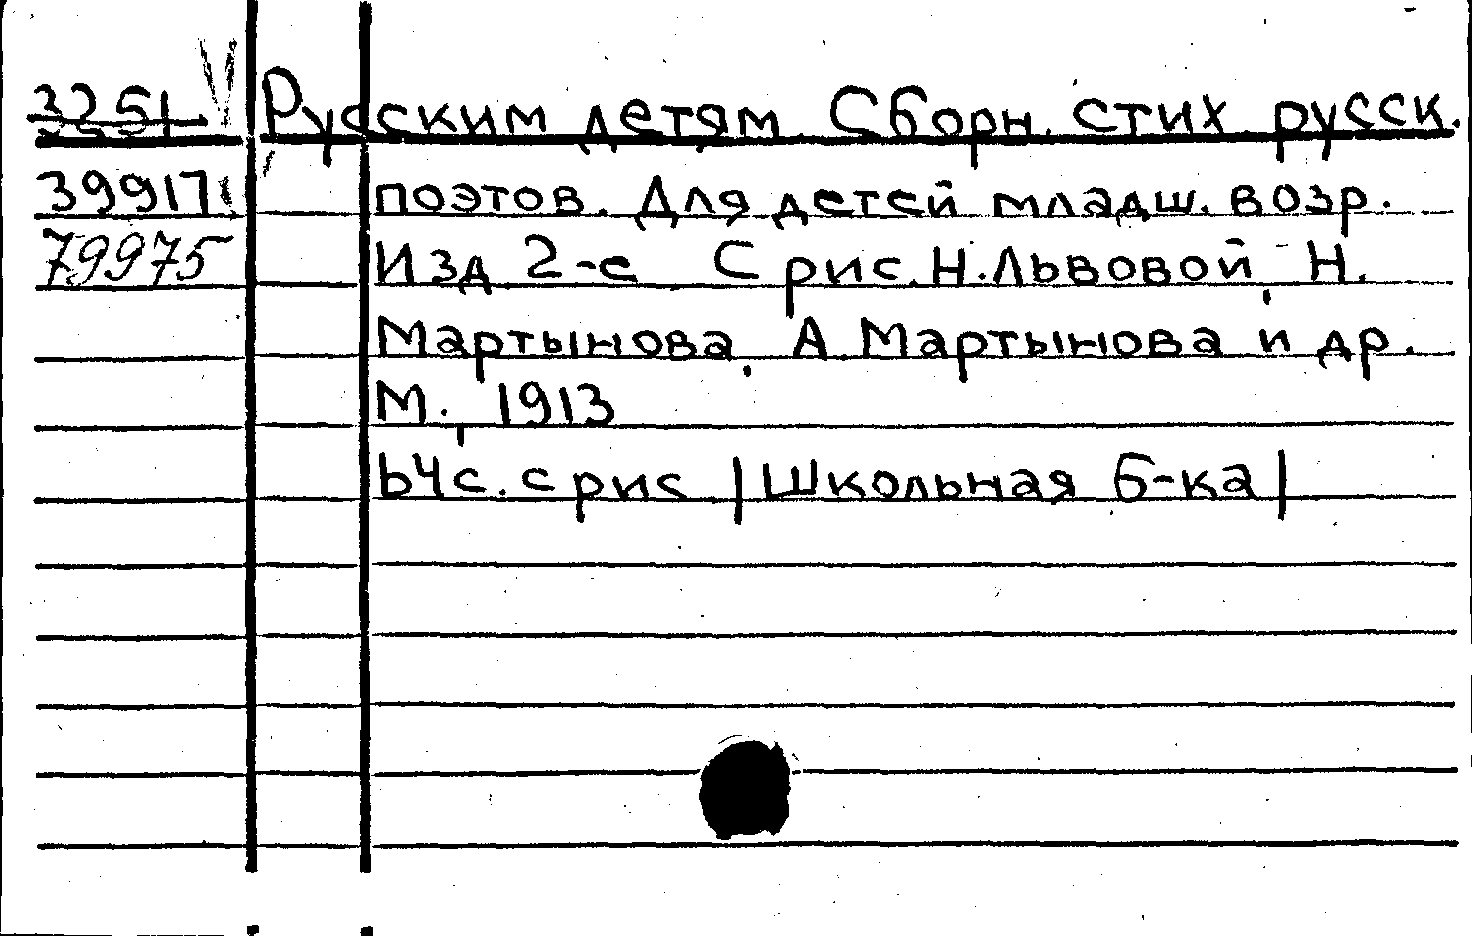 3251 V Русским детям. Сборн. стих русск.
39917 поэтов. Для детей младш. возр.
79975 Изд 2-е С рис. Н. Львовой, Н.
Мартынова, А. Мартынова и др.
М., 1913
64с. с рис |Школьная б-ка|